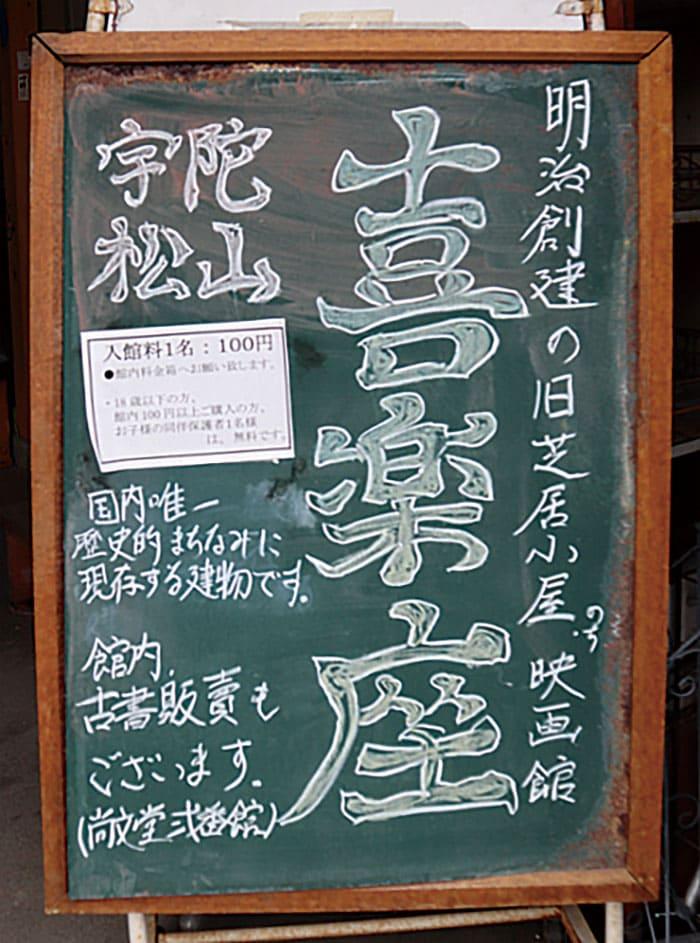 明治創建の旧芝居小屋.のち映画館
喜楽座
宇陀
松山
入館料1名：100円
●館内料金箱へお願い致します。
・18歳以下の方、
館内100円以上ご購入の方、
お子様の同伴保護者1名様
は、無料です。
国内唯一
歴史的まちなみに
現存する建物です。
館内、
古書販賣も
ございます。
(尚文堂弐番館)